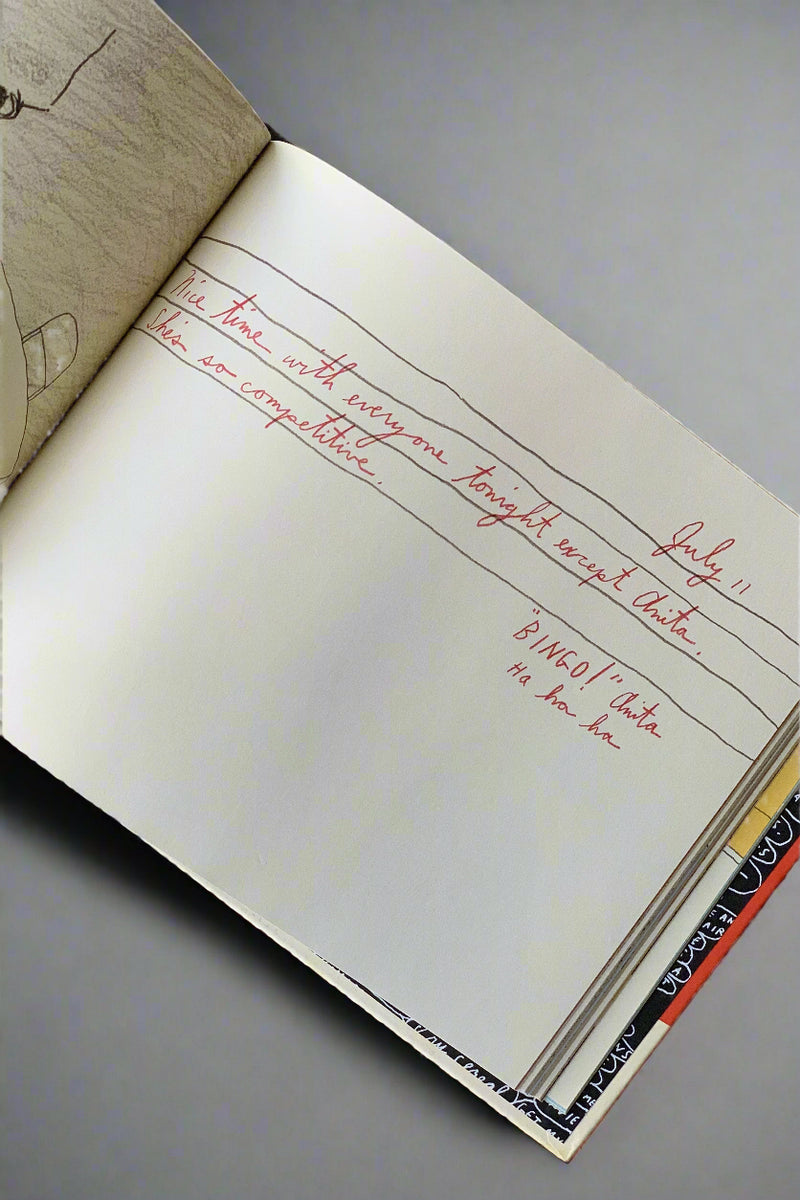 July 11
Nice time with everyone tonight except Anita.
She's so competitive.
"BINGO!" Anita
Ha ha ha